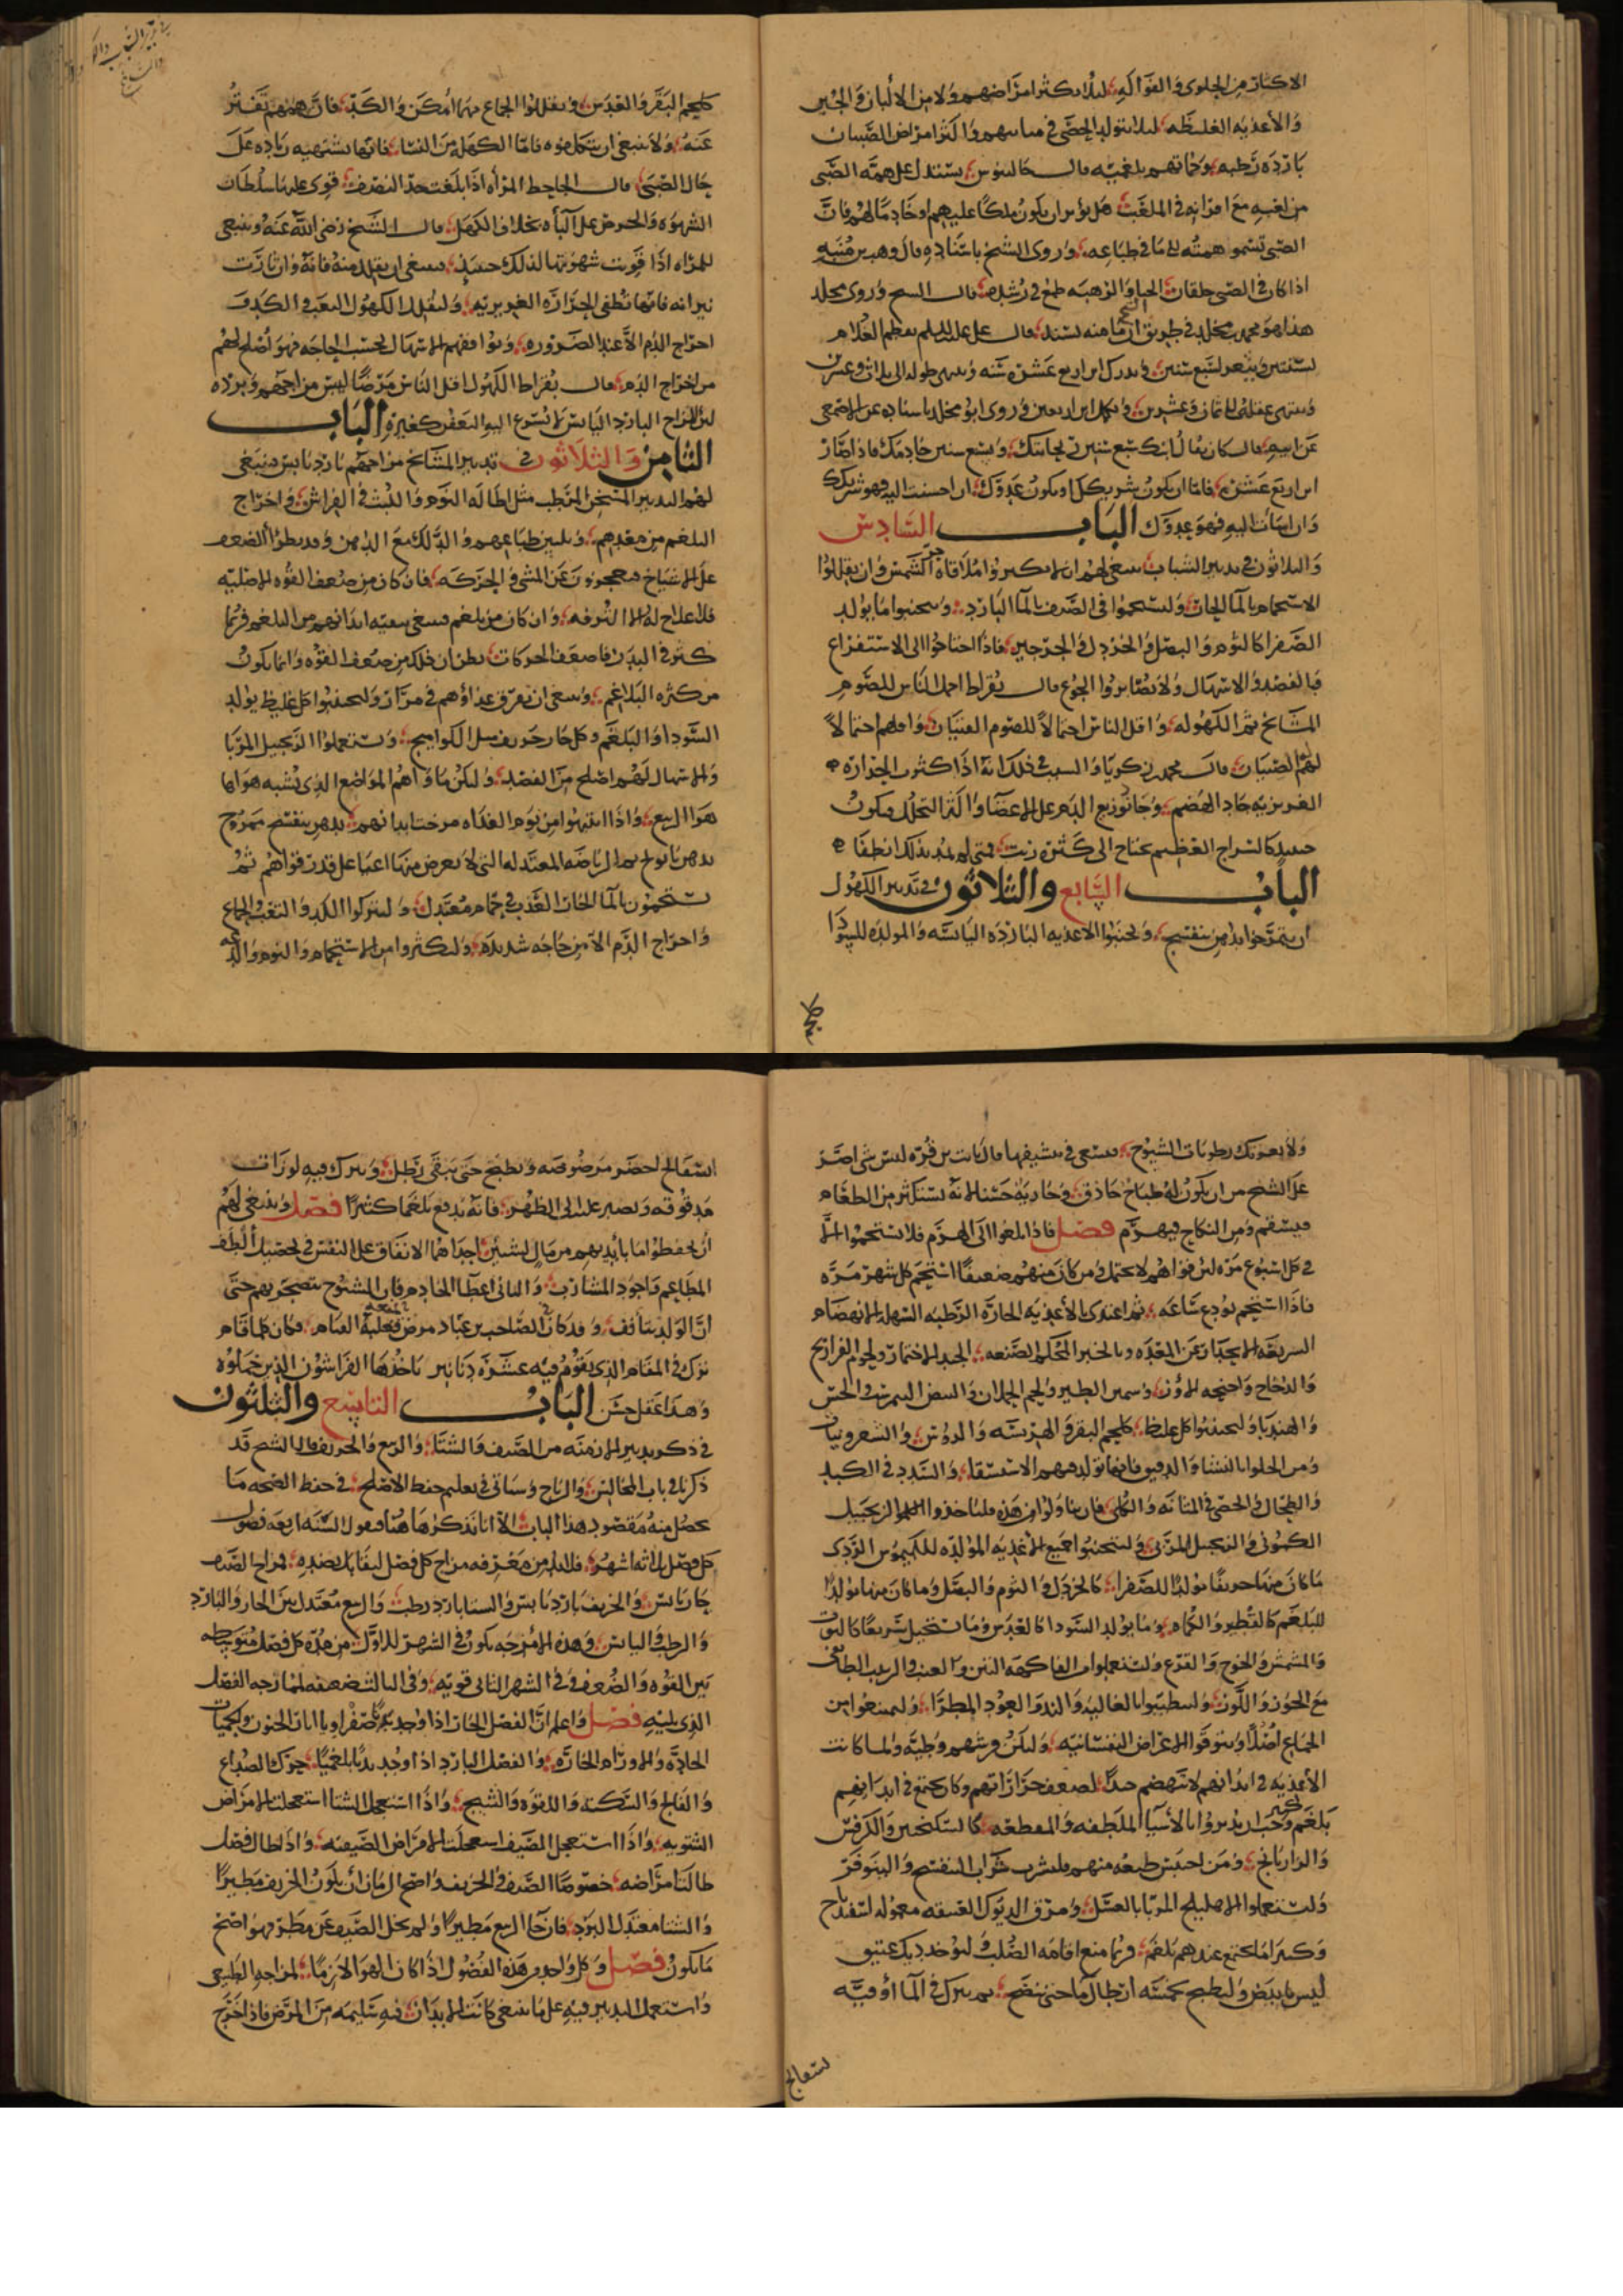 الاكثار من الحلوى والفواكه لئلا تكثر امراضهم ولا من الألبان والجبن
والأغذية الغليظة لئلا يتولد الحصى في مثاناتهم واكثر امراض الصبيان
باردة رطبة وحمياتهم بلغمية قال جالينوس يستدل على همة الصبي
من لعبه مع اقرانه في الملعب هل يؤثر ان يكون ملكا عليهم او خادما لهم فان
الصبي تسمو همته الى ما في طباعه وروى الشيخ باسناده قال وهب بن منبه
اذا كان في الصبي خلقان الحياء والرهبة طمع في رشده قال الشيخ وروى مخلد
هذا هو محمد بن مخلد في طريق قال علي عليه السلم يعظم الغلام
لسنتين ويثغر لسبع سنين ويدرك ابن اربع عشرة سنة وينتهي طوله الى ثلاث وعشرين
وينتهي عقله لثمان وعشرين ويكمل ابن اربعين وروى ابو مخلد باسناده عن الاصمعي
عن ابيه قال كان يقال ابنك سبع سنين ريحانتك وسبع سنين خادمك فاذا صار
ابن اربع عشرة فاما ان يكون شريكك او يكون عدوك ان احسنت اليه فهو شريكك
وان اسأت اليه فهو عدوك الباب السادس
والثلاثون في تدبير الشباب ينبغي لهم ان لا يكثروا ملاقاة حر الشمس وان يقللوا
الاستحمام بالماء الحار وليستحموا في الصيف بالماء البارد ويجتنبوا ما يولد
الصفرا كالثوم والبصل والخردل والجرجير فاذا احتاجوا الى الاستفراغ
فبالفصد والاسهال ولا يصابروا الجوع قال بقراط احمل الناس للصوم
المشايخ ثم الكهولة واقل الناس احتمالا للصوم الفتيان واقلهم احتمالا
لهم الصبيان قال محمد بن زكريا والسبب في ذلك انه اذا كثرت الحرارة
الغريزية جاد الهضم وجاد توزيع الدم على الاعضا وكثر التحلل فيكون
حينئذ كالسراج العظيم يحتاج الى كثرة زيت فمتى لم يمد بذلك انطفا
الباب السابع والثلاثون في تدبير الكهول
ان يتمرخوا بدهن بنفسج ويجتنبوا الاغذية الباردة اليابسة والمولدة للسودا
كلحم البقر والعدس ويقللوا الجماع مهما امكن والكد فان هممهم تفتر
عنه ولا ينبغي ان يتكلفوه فاما الكهل من النسا فانها تشتهيه زيادة على
حال الصبى قال الجاحظ المرأة اذا بلغت حد النصف قوي عليها سلطان
الشهوة والحرص على الباه بخلاف الكهل قال الشيخ رضي الله عنه وينبغي
للمراه اذا قويت شهوتها لذلك حينئذ فينبغي ان يقلل منه فانه وان ثارت
نيرانه فانها تطفي الحرارة الغريزية وليقلل الكهول التعب والكد
اخراج الدم الا عند الضرورة ويوافقهم الاسهال بحسب الحاجة فهو اصلح لهم
من اخراج الدم قال بقراط الكهول اقل الناس مرضا ليبس مزاجهم وبرده
لان المزاج البارد اليابس لا يسرع اليه التعفن كغيره الباب
الثامن والثلاثون في تدبير المشايخ مزاجهم بارد يابس فينبغي
لهم التدبير المسخن المرطب مثل اطالة النوم واللبث في الفراش واخراج
البلغم من معدهم وتليين طباعهم والدلك مع الدهن وقد يطرأ الضعف
على المشايخ فيعجزون عن المشي والحركة فان كان من ضعف القوة الاصلية
فلا علاج له الا الترفه وان كان من بلغم فينبغي تنقية ابدانهم من البلغم فربما
كثر في البدن فاضعف الحركات فظن ان ذلك من ضعف القوة وانما يكون
من كثرة البلاغم وينبغي ان يفرق غذاؤهم في مرات وليجتنبوا كل غليظ يولد
السودا والبلغم وكل حار حريف مثل الكواميخ ويستعملوا الزنجبيل المربا
والاسهال لهم اصلح من الفصد وليكن ماواهم المواضع الذي يشبه هواها
هوا الربيع واذا انتبهوا من نوم الغداه مرخت ابدانهم بدهن بنفسج ممزوج
بدهن بابونج ثم الرياضة المعتدلة التي لا يعرض منها اعيا على قدر قواهم ثم
يستحمون بالماء الحار العذب في حمام معتدل وليتركوا الكد والتعب والجماع
واخراج الدم الا من حاجة شديدة وليكثروا من الاستحمام والنوم والدعة
ولا يغرنك رطوبات الشيوخ فتسعى في تنشيفها قال ثابت بن قرة ليس شي اضر
على الشيخ من ان يكون له طباخ حاذق وجارية حسنا لانه يستكثر من الطعام
فيسقم ومن النكاح فيهرم فصل فاذا بلغوا الى الهرم فلا يستحموا الا
في كل اسبوع مرة لان قواهم لا تحتمل ومن كان منهم ضعيفا استحم كل شهر مرة
فاذا استحم تودع ساعة ثم اغتذى بالأغذية الحارة الرطبة السهلة الانهضام
السريعة الانحدار عن المعدة وبالخبز المحكم الصنعة الجيد الاختمار ولحوم الفراريج
والدجاج واجنحة الاوز وسمين الطير ولحم الحملان والبيض النمرشت والخس
والهندبا وليجتنبوا كل غليظ كلحم البقر والهريسة والروس والشعير ونيات
ومن الحلوا بالنشا والدقيق فانها تولد فيهم الاستسقا والسدد في الكبد
والطحال والحصى في المثانة والكلى فان تناولوا من هذه فليأخذوا الزنجبيل
الكموني والزنجبيل المربى وليجتنبوا جميع الأغذية المولدة للكيموس الردي
ما كان منها حريفا مولدا للصفرا كالخردل والثوم والبصل وما كان منها مولدا
للبلغم كالفطير والكماه وما يولد السودا كالعدس وما يستحيل سريعا كالتوت
والمشمش والخوخ والقرع وليستعملوا من الفاكهة التين والعنب والزبيب الطايفي
مع الجوز واللوز وليتطيبوا بالغالية والند والعود المطرا وليمنعوا من
الجماع اصلا ويتوقوا الاعراض النفسانية ولتكن فرشهم وطية ولما كانت
الأغذية في ابدانهم لا تنهضم جيدا لضعف حراراتهم وكان يجتمع في ابدانهم
بلغم كثير وجب ان يدبروا بالأشيا الملطفة والمقطعة كالسكنجبين والكرفس
والرازيانج ومن احتبس طبعه منهم فليشرب شراب البنفسج والنيلوفر
وليستعملوا الاهليلج المربا بالعسل ومرق الديوك العتيقة معمولة اسفيدباج
وكثيرا ما يجتمع عندهم بلغم فربما منع اقامة الصلب وليوخذ ديك عتيق
ليس بابيض وليطبخ بخمسة ارطال ما حتى ينضج ثم يترك في الما اوقية
اسفانج اخضر مرضوضة ويطبخ حتى يبقى رطل ويترك فيه لوزات
مدقوقة ويصبر عليه الى الظهر فانه يدفع بلغما كثيرا فصل وينبغي لهم
ان يحفظوا ما بأيديهم من مال لشيئين احداهما الانفاق على النفس في تحصيل ألطف
المطاعم واجود المشارب والثاني اعطا الخادم فان الشيوخ يتضجر بهم حتى
ان الولد يتأفف وقد كان الصاحب بن عباد مرض بعلة القيام فكان كلما قام
ترك في المقام الذي يقوم فيه عشرة دنانير ياخذها الفراشون الذين خملوه
وهذا عقل حسن الباب التاسع والثلثون
في ذكر تدبير الازمنة من الصيف والشتا والربيع والخريف قال الشيخ قد
ذكرنا في باب المجالس والرياح وسياتي في تعليم حفظ الاصلح في حفظ الصحة ما
يحصل منه مقصود هذا الباب الا انا نذكرها هنا فنقول السنة اربعة فصول
كل فصل ثلاثة اشهر فلا بد من معرفة مزاج كل فصل ليقابل بضده فمزاج الصيف
حار يابس والخريف بارد يابس والشتا بارد رطب والربيع معتدل بين الحار والبارد
والرطب واليابس وهذه الأمزجة تكون في الشهر الاول من مدة كل فصل متوسطة
بين القوة والضعف وفي الشهر الثاني قوية وفي الثالث ضعيفة لممازجة الفصل
الذي يليه فصل واعلم ان الفصل الحار اذا وجد بدنا صفراويا ابان الجنون والحميات
الحادة والاورام الحارة والفصل البارد اذا وجد بدنا بلغميا حرك الصداع
والفالج والسكتة واللقوة والتشنج واذا استعجل الشتا استعجلت الامراض
الشتوية واذا استعجل الصيف استعجلت الامراض الصيفية واذا طال فصل
طالت امراضه خصوصا الصيف والخريف واصح الزمان ان يكون الخريف مطيرا
والشتا معتدل البرد فان جا الربيع مطيرا ولم يخل الصيف عن مطر فهو اصح
ما يكون فصل وكل واحد من هذه الفصول اذا كان الهوا لازما لمزاجه الطبيعي
واستعمل التدبير فيه على ما ينبغي كانت الابدان فيه سليمة من المرض فاذا خرج